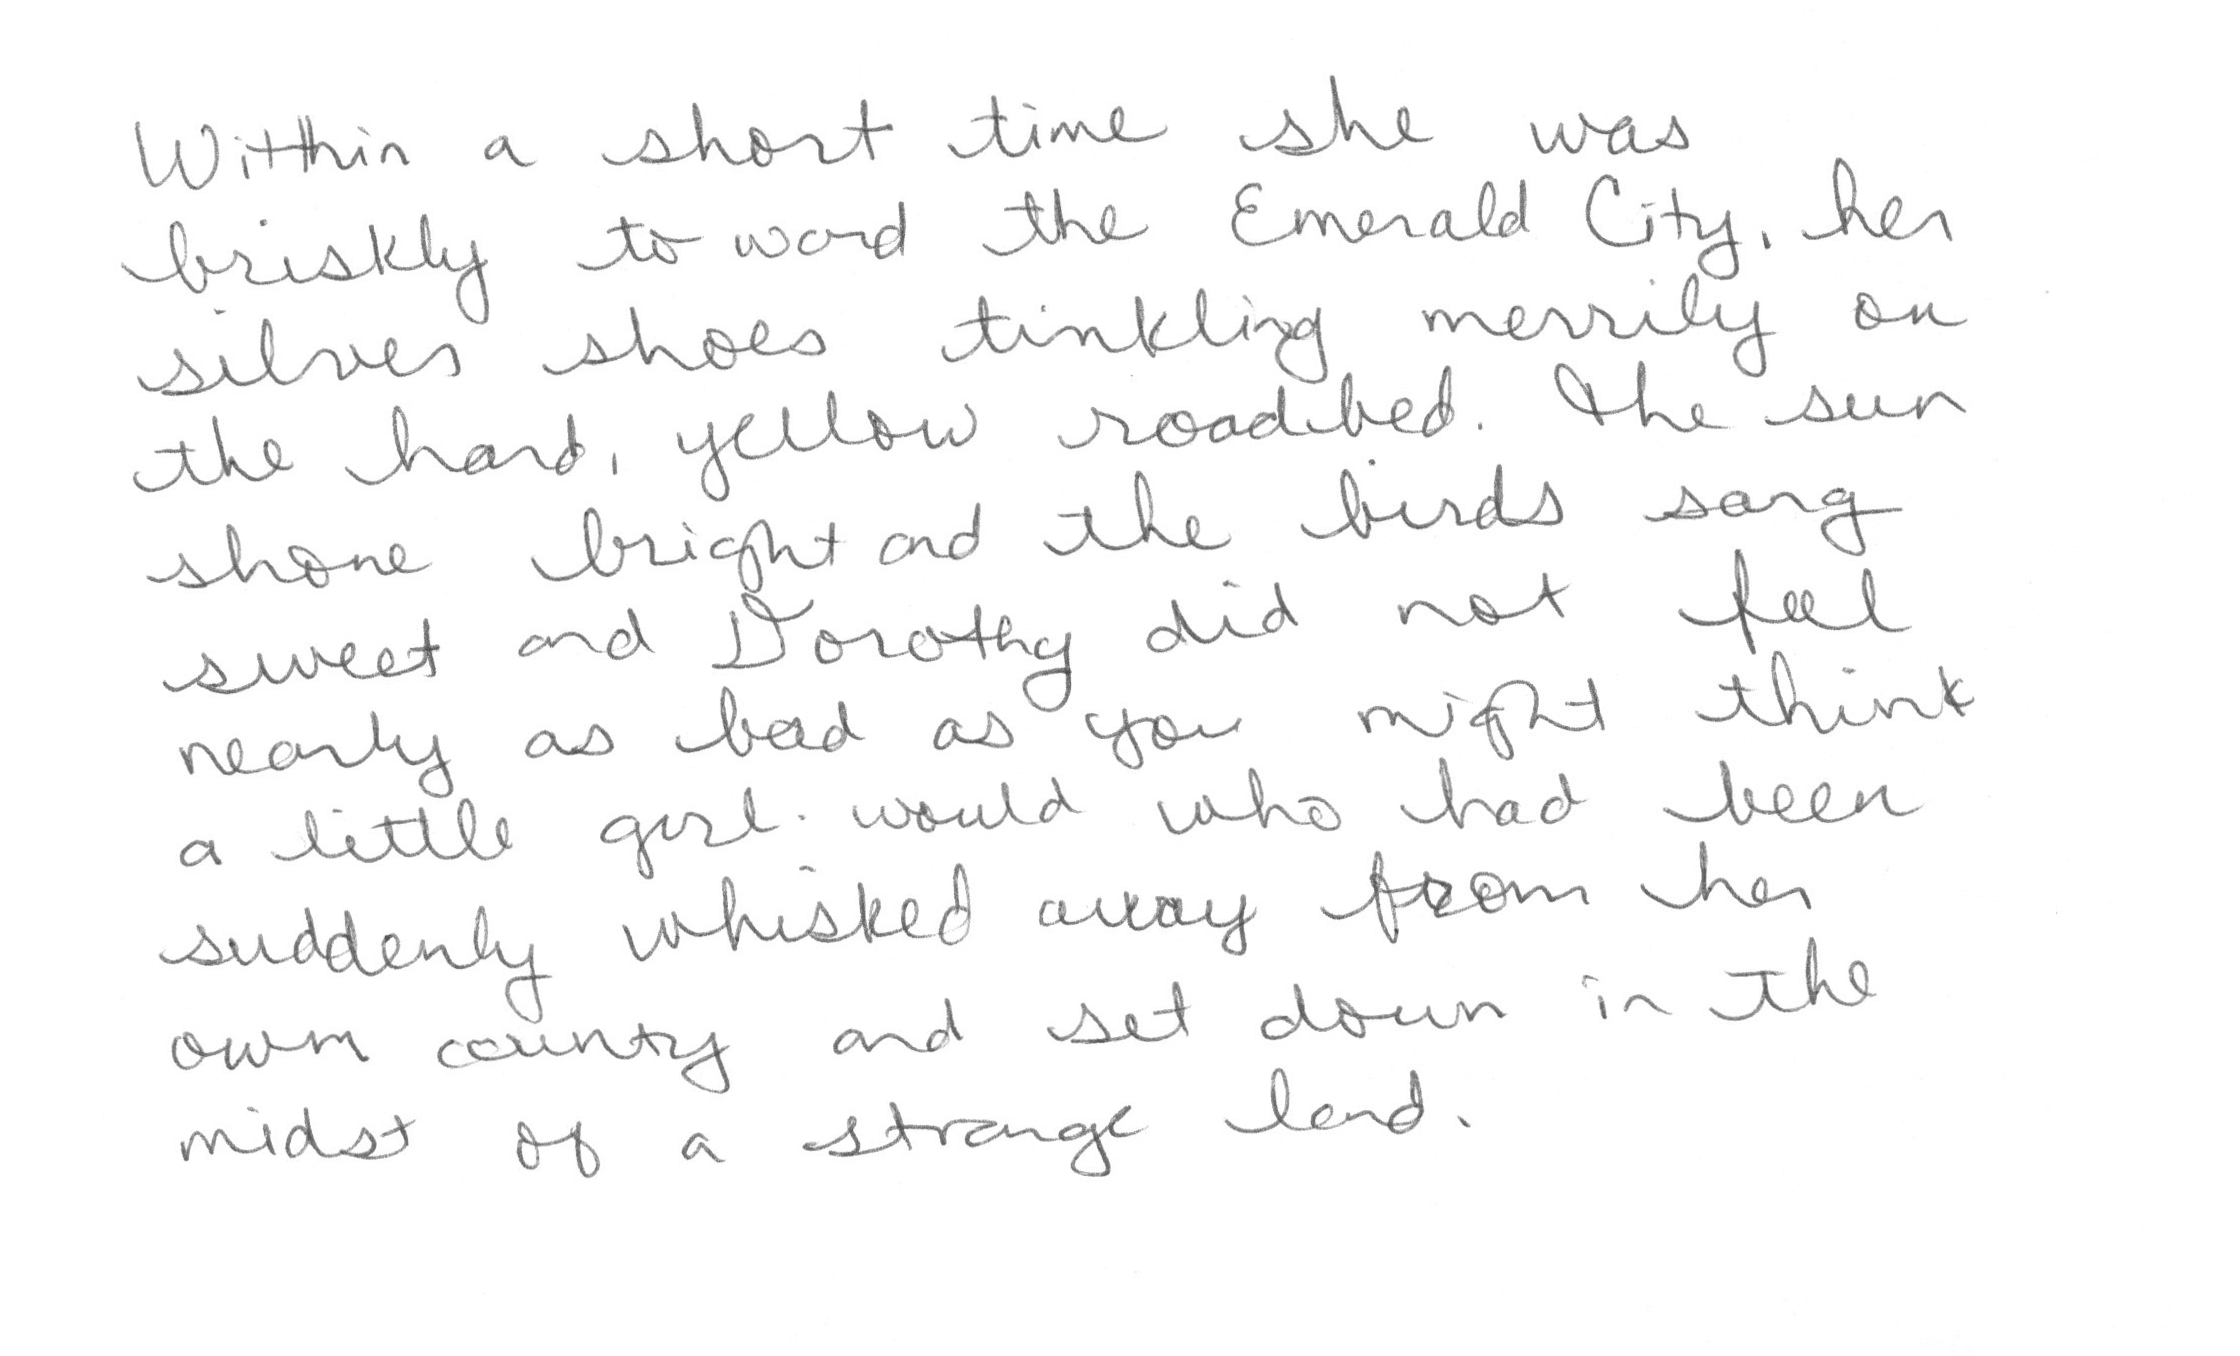 Within a short time she was
briskly to word the Emerald City, her
silver shoes tinkling merrily on
the hard, yellow roadbed. The sun
shone bright and the birds sang
sweet and Dorothy did not feel
nearly as bad as you might think
a little girl would who had been
suddenly whisked away from her
own county and set down in the
midst of a strange land.